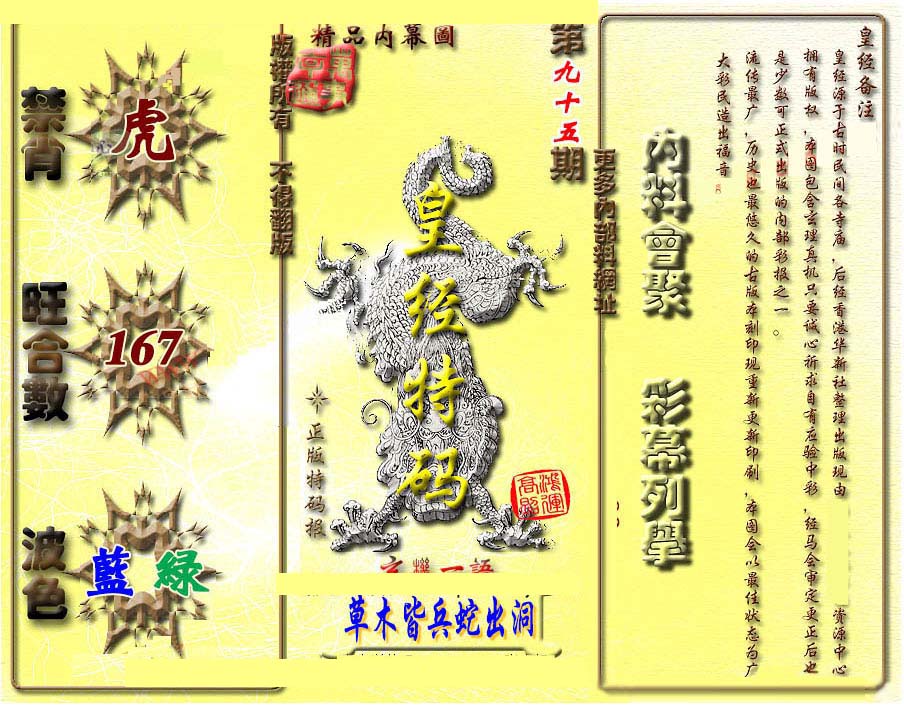 禁肖
虎
旺合數
167
波色
藍 綠
版權所有 不得翻版
精品内幕圖
第九十五期
皇经特码
正版特码报
鴻運高照
玄機一語
草木皆兵蛇出洞
更多内部料網址
内料會聚 彩幕列舉
皇经备注
皇经源于古时民间各寺庙,后经香港华新社整理出版现由 资源中心
拥有版权,本图包含玄理真机只要诚心祈求自有应验中彩,经马会审定更正后也
是少数可正式出版的内部彩报之一。
流传最广,历史也最悠久的古版本刻印现重新更新印刷,本图会以最佳状态为广
大彩民造出福音